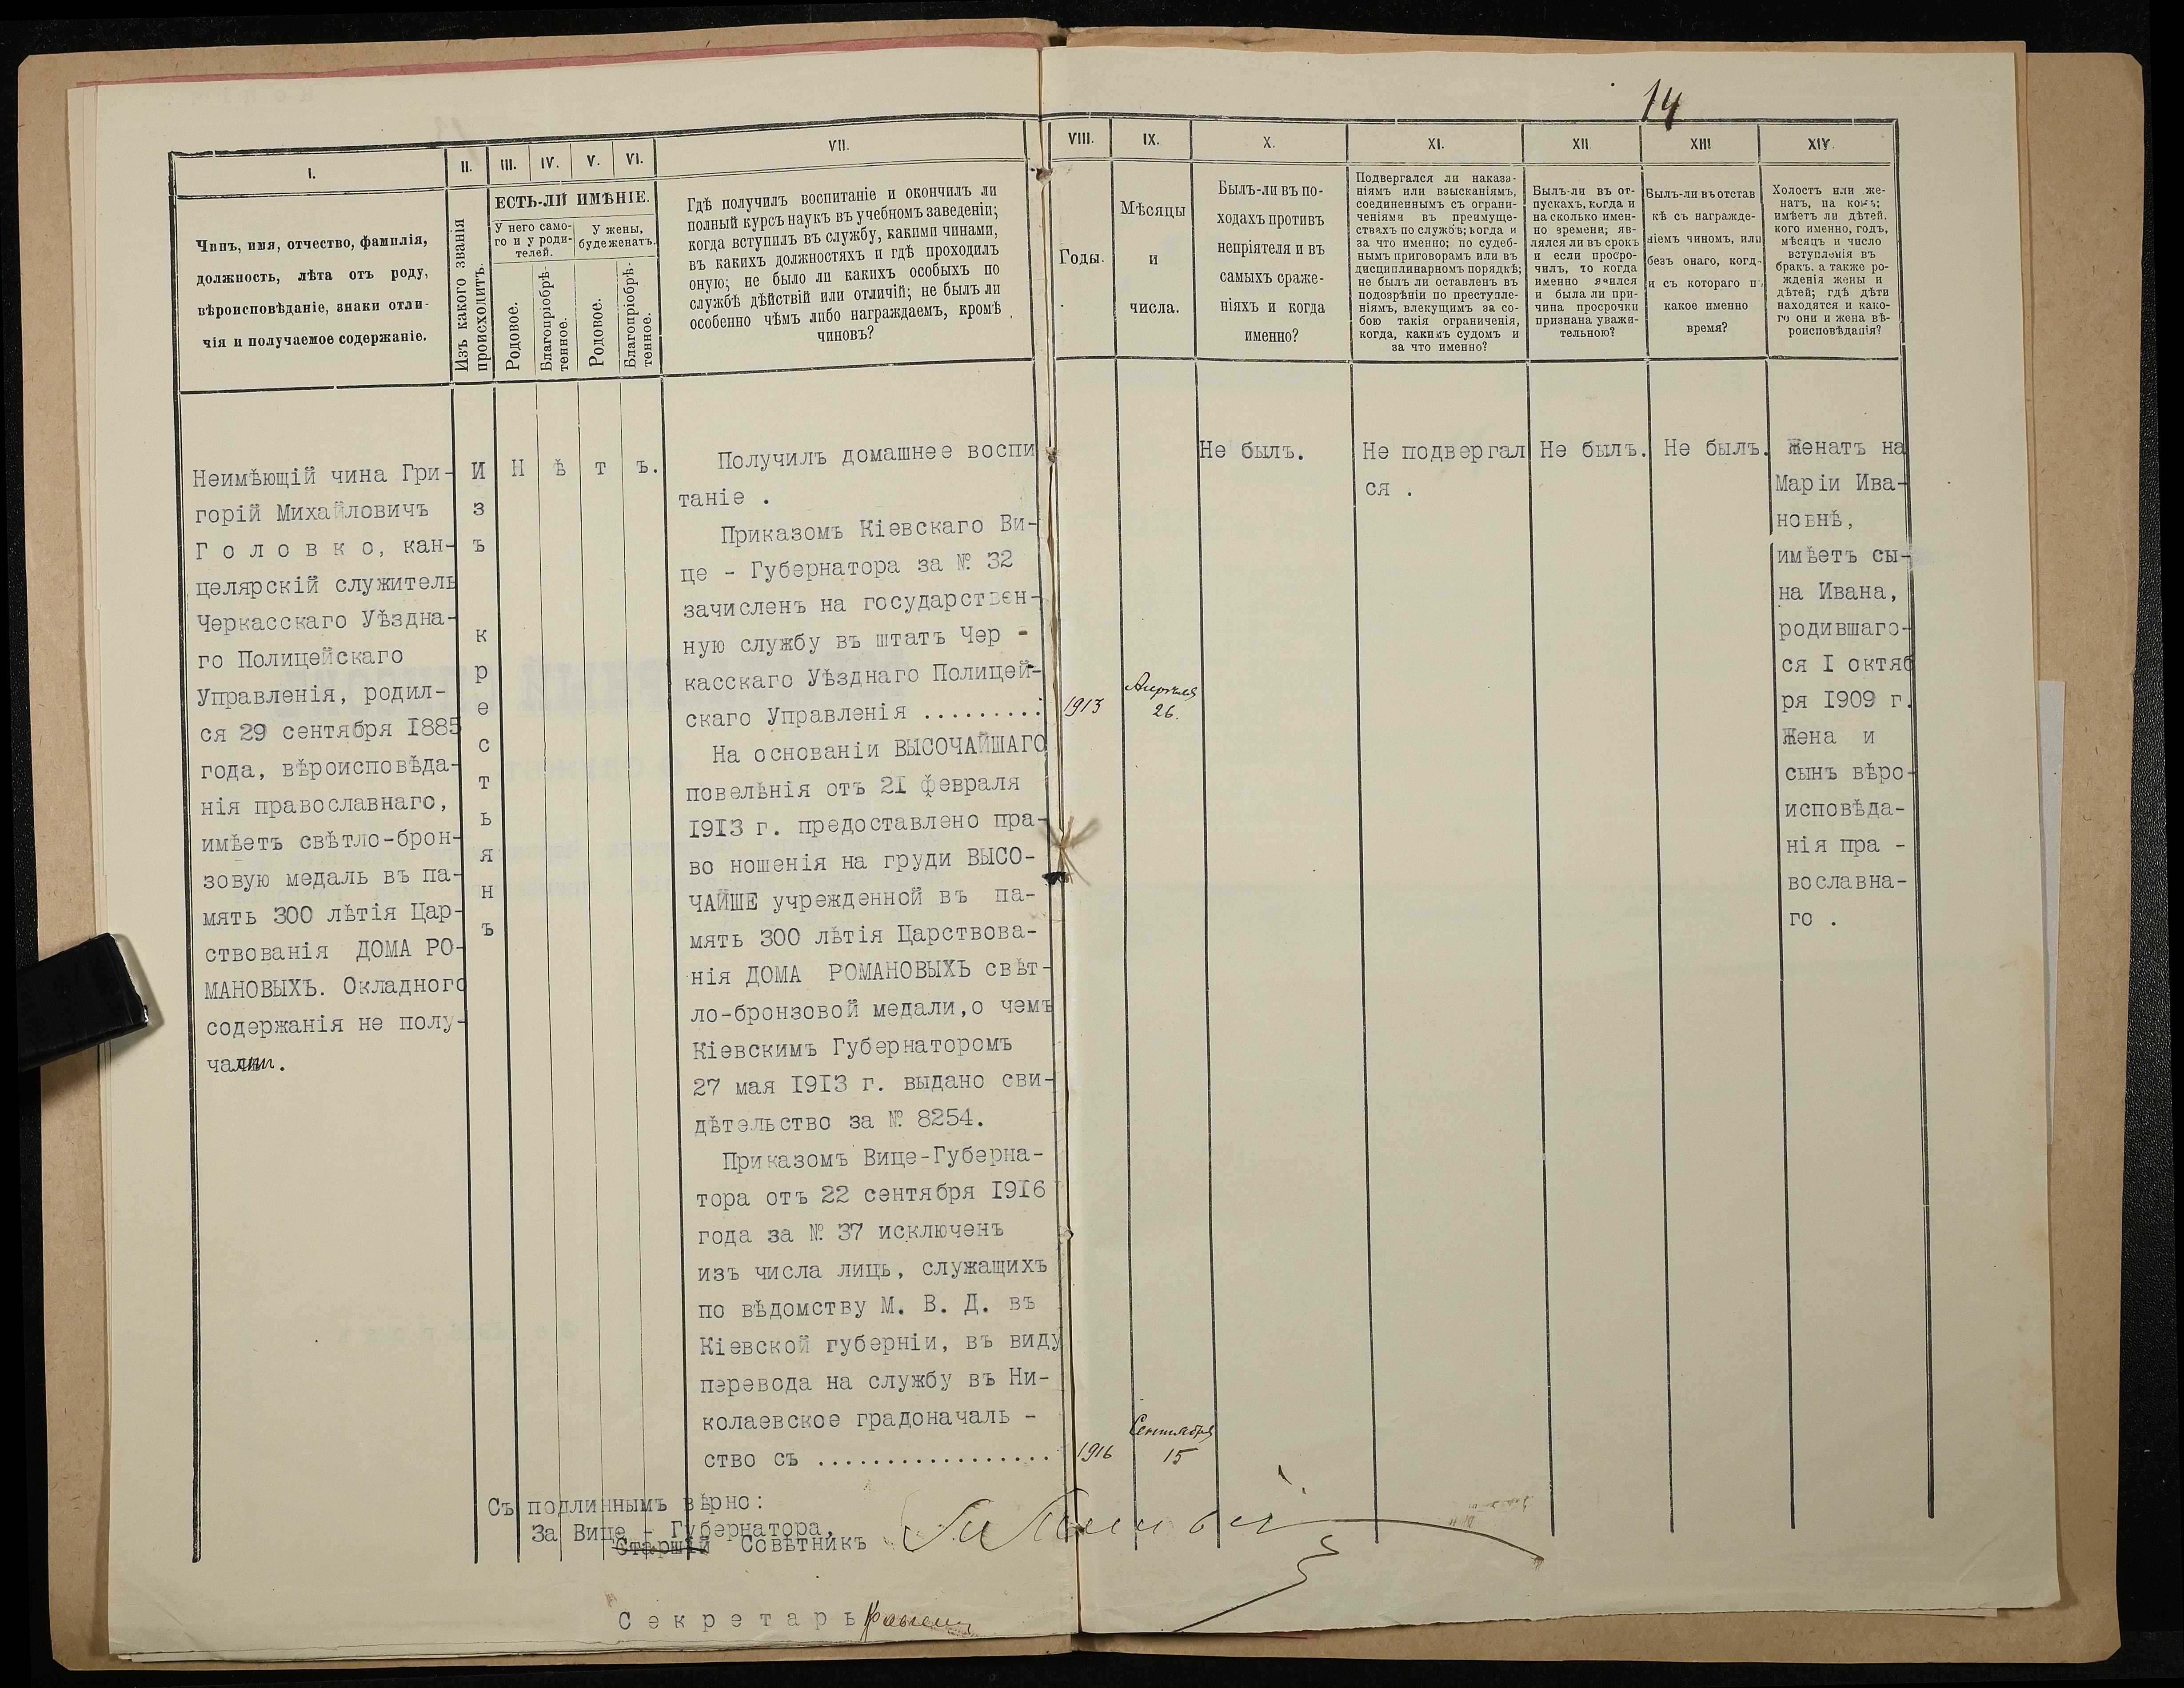 14
I.
II.
III.
IV.
V.
VI.
VII.
VIII.
IX.
X.
XI.
XII
XIII
XIV.
Чинъ, имя, отчество, фамилія,
должность, лѣта отъ роду,
вѣроисповѣданіе, знаки отли-
чія и получаемое содержаніе.
Изъ какого званія
происходитъ.
ЕСТЬ-ЛИ ИМѢНІЕ.
У него само-
го и у роди-
телей.
У жены,
буде женатъ.
Родовое.
Благопріобрѣ-
тенное.
Родовое.
Благопріобрѣ-
тенное.
Гдѣ получилъ воспитаніе и окончилъ ли
полный курсъ наукъ въ учебномъ заведеніи;
когда вступилъ въ службу, какими чинами,
въ какихъ должностяхъ и гдѣ проходилъ
оную; не было ли какихъ особыхъ по
службѣ дѣйствій или отличій; не былъ ли
особенно чѣмъ либо награждаемъ, кромѣ
чиновъ?
Годы.
Мѣсяцы
и
числа.
Былъ-ли въ по-
ходахъ противъ
непріятеля и въ
самыхъ сраже-
ніяхъ и когда
именно?
Подвергался ли наказа-
ніямъ или взысканіямъ,
соединеннымъ съ ограни-
ченіями въ преимуще-
ствахъ по службѣ; когда и
за что именно; по судеб-
нымъ приговорамъ или въ
дисциплинарномъ порядкѣ;
не былъ ли оставленъ въ
подозрѣніи по преступле-
ніямъ, влекущимъ за со-
бою такія ограниченія,
когда, какимъ судомъ и
за что именно?
Былъ-ли въ от-
пускахъ, когда и
на сколько имен-
но времени; яв-
лялся ли въ срокъ
и если просро-
чилъ, то когда
именно явился
и была ли при-
чина просрочки
признана уважи-
тельною?
Былъ-ли въ отстав
кѣ съ награжде-
ніемъ чиномъ, или
безъ онаго, когд
и съ котораго п
какое именно
время?
Холостъ или же-
натъ, на комъ;
имѣетъ ли дѣтей,
кого именно, годъ,
мѣсяцъ и число
вступленія въ
бракъ, а также ро-
жденія жены и
дѣтей; гдѣ дѣти
находятся и како-
го они и жена вѣ-
роисповѣданія?
Неимѣющій чина Гри-
горій Михайловичъ
Г о л о в к о, кан-
целярскій служитель
Черкасскаго Уѣздна-
го Полицейскаго
Управленія, родил-
ся 29 сентября I885
года, вѣроисповѣда-
нія православнаго,
имѣетъ свѣтло-брон-
зовую медаль въ па-
мять 300 лѣтія Цар-
ствованія ДОМА РО-
МАНОВЫХЪ. Окладного
содержанія не полу-
чалъ.
И
з
ъ
к
р
е
с
т
ь
я
н
ъ
Н ѣ т ъ.
Получилъ домашнее воспи
таніе .
Приказомъ Кіевскаго Ви-
це - Губернатора за № 32
зачисленъ на государствен-
ную службу въ штатъ Чер -
касскаго Уѣзднаго Полицей-
скаго Управленія .........
1913
Апрѣля
26.
На основаніи ВЫСОЧАЙШАГО
повелѣнія отъ 2I февраля
I9I3 г. предоставлено пра-
во ношенія на груди ВЫСО-
ЧАЙШЕ учрежденной въ па-
мять 300 лѣтія Царствова-
нія ДОМА РОМАНОВЫХЪ свѣт-
ло-бронзовой медали,о чемъ
Кіевскимъ Губернаторомъ
27 мая I9I3 г. выдано сви-
дѣтельство за № 8254.
Приказомъ Вице-Губерна-
тора отъ 22 сентября I9I6
года за № 37 исключенъ
изъ числа лицъ, служащихъ
по вѣдомству М. В. Д. въ
Кіевской губерніи, въ виду
перевода на службу въ Ни-
колаевское градоначаль -
ство съ .................
1916
Сентября
15
Не былъ.
Не подвергал
ся .
Не былъ.
Не былъ.
Женатъ на
Маріи Ива-
новнѣ,
имѣетъ сы-
на Ивана,
родившаго-
ся I октяб
ря I909 г.
Жена и
сынъ вѣро-
исповѣда-
нія пра -
вославна-
го .
Съ подлиннымъ вѣрно:
За Вице - Губернатора,
Старшій Совѣтникъ
С е к р е т а р ь